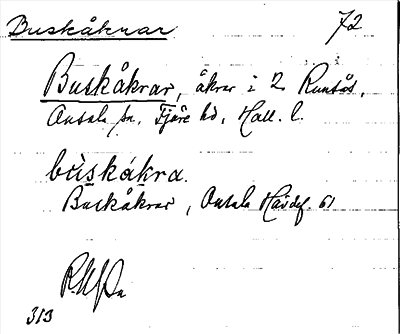 Buskåkrar 72
Buskåkrar, åkrar i 2 Runsås,
Onsala sn, Fjäre hd, Hall. l.
buskákra.
Buskåkrar, Onsala Hävdef. 61
313